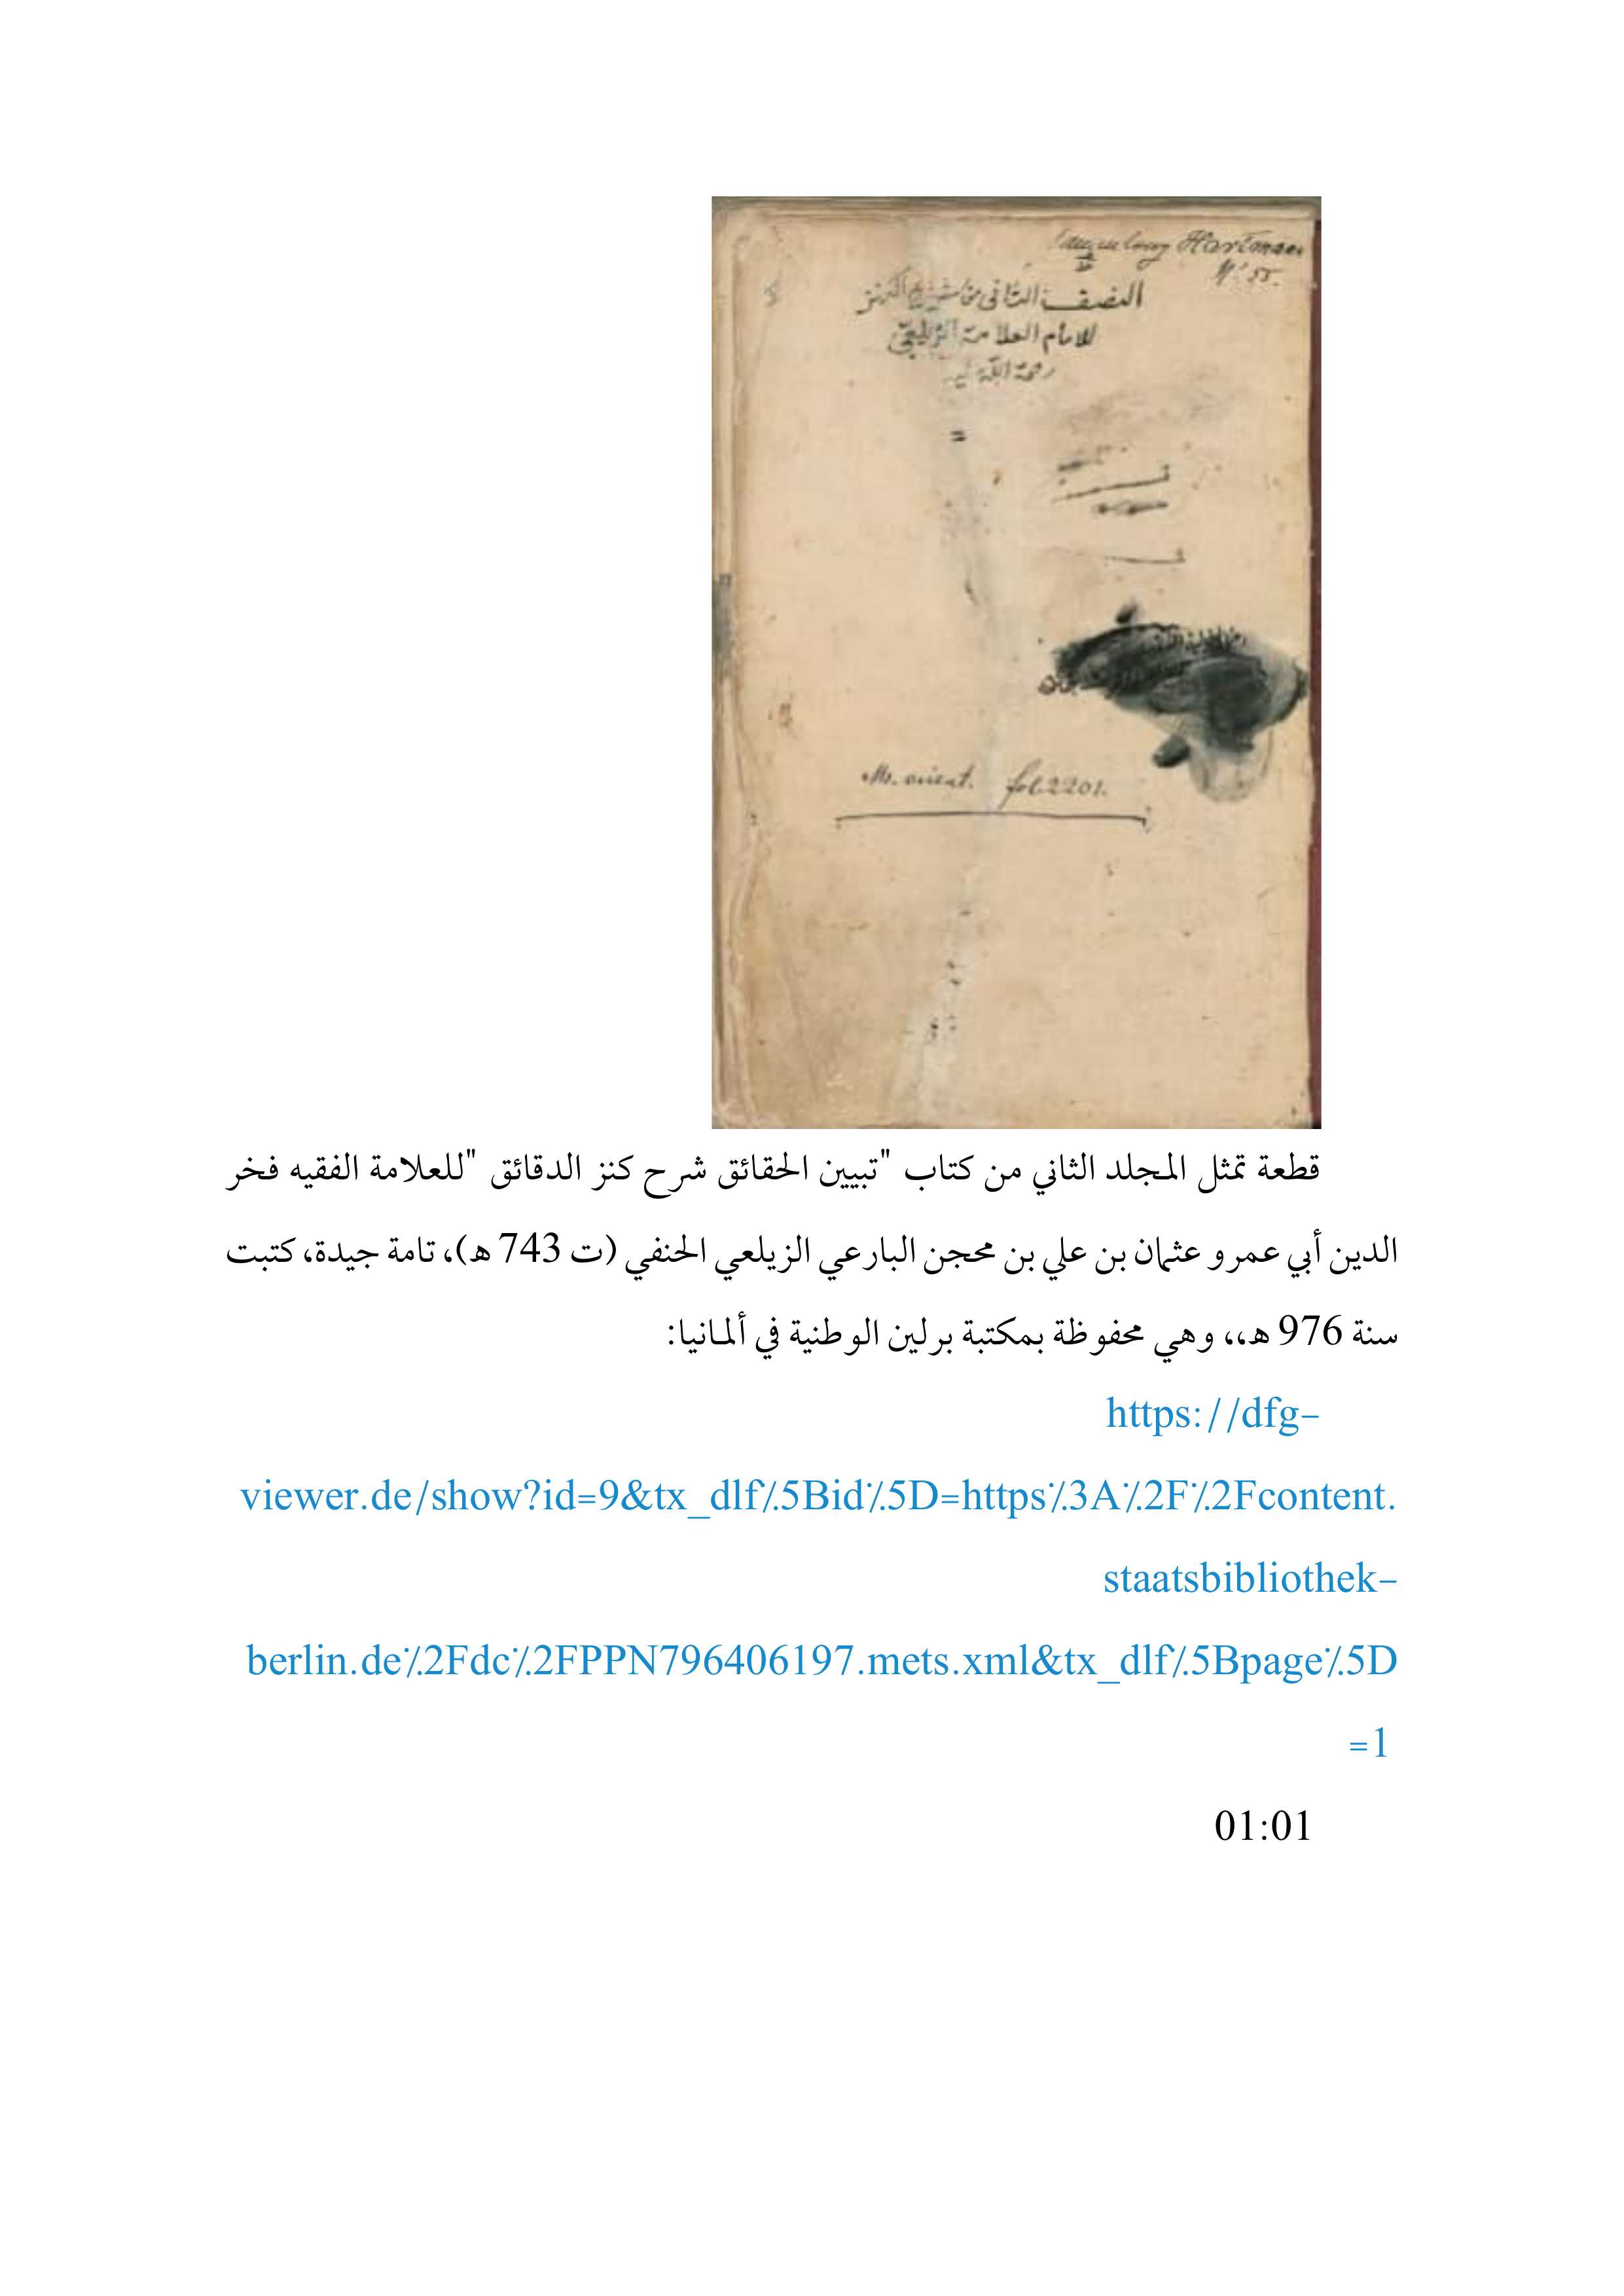 Hartmann
N° 55.
النصف الثاني من شرح الكنز
للامام العلامة الزيلعي
رحمة الله
Ms. orient. fol 2201.
قطعة تمثل المجلد الثاني من كتاب "تبيين الحقائق شرح كنز الدقائق "للعلامة الفقيه فخر
الدين أبي عمرو عثمان بن علي بن محجن البارعي الزيلعي الحنفي (ت 743 هـ)، تامة جيدة، كتبت
سنة 976 هـ،، وهي محفوظة بمكتبة برلين الوطنية في ألمانيا:
https://dfg-
viewer.de/show?id=9&tx_dlf%5Bid%5D=https%3A%2F%2Fcontent.
staatsbibliothek-
berlin.de%2Fdc%2FPPN796406197.mets.xml&tx_dlf%5Bpage%5D
=1
01:01